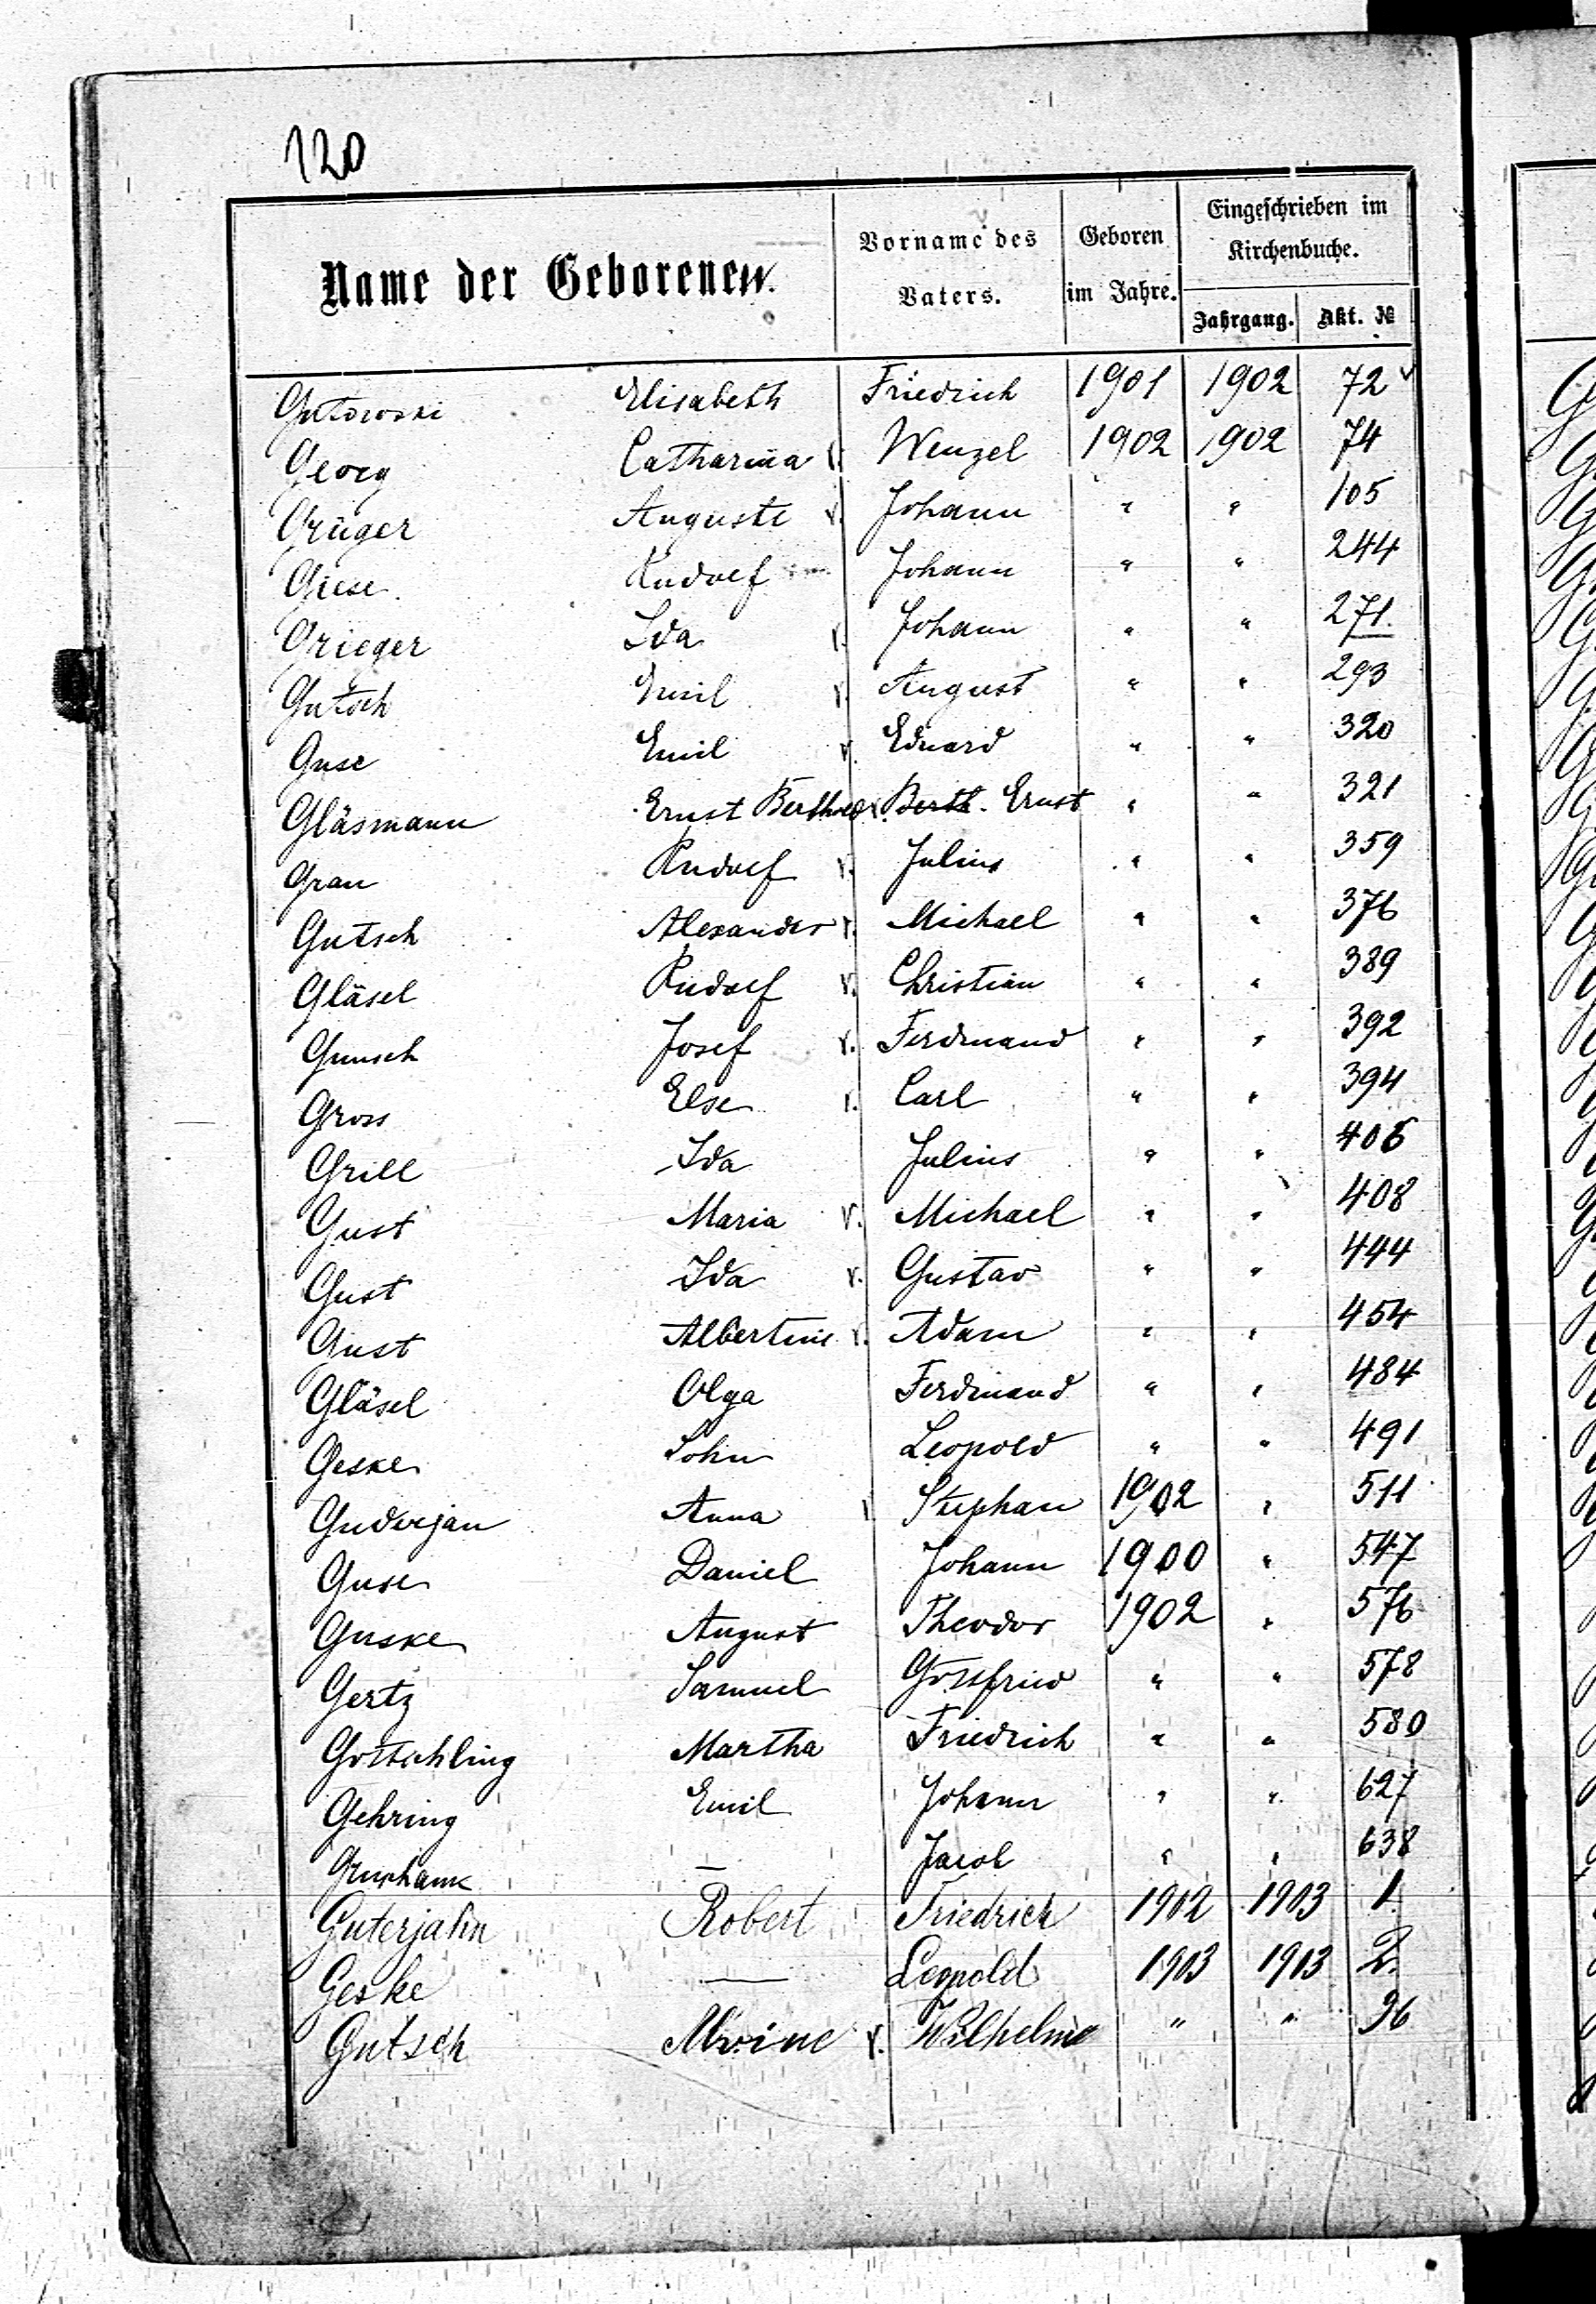 120
Name der Geborenen.
Vorname des Vaters.
Geboren im Jahre.
Eingeschrieben im Kirchenbuche.
Jahrgang. Akt. №
Gutowski Elisabeth Friedrich 1901 1902 72 v
Georg Catharina v. Wenzel 1902 1902 74
Krüger Auguste v. Johann " " 105
Giese. Rudolf Johann " " 244
Grieger Ida v. Johann " " 271.
Gutsch Emil v. August " " 293
Guse Emil v. Eduard " " 320
Gläsmann Ernst Berthold v. Berth. Ernst " " 321
Grau Rudolf v. Julius " " 359
Gutsch Alexander v. Michael " " 376
Gläsel Rudolf v. Christian " " 389
Gunsch Josef v. Ferdinand " " 392
Gross Else v. Carl " " 394
Grill Ida Julius " " 406
Gust Maria v. Michael " " 408
Gust Ida v. Gustav " " 444
Gust Albertine v. Adam " " 454
Gläsel Olga Ferdinand " " 484
Geske Sohn Leopold " " 491
Guderjan Anna v Stephan 1902 " 511
Guse Daniel Johann 1900 " 547
Guske August Theodor 1902 " 576
Gertz Samuel Gottfried " " 578
Gottschling Martha Friedrich " " 580
Gehring Emil Johann " " 627
— Jacob " " 638
Guterjahn Robert Friedrich 1902 1903 1.
Geske — Leopold 1903 1903 2.
Gutsch Alvine v. Wilhelm " " 36